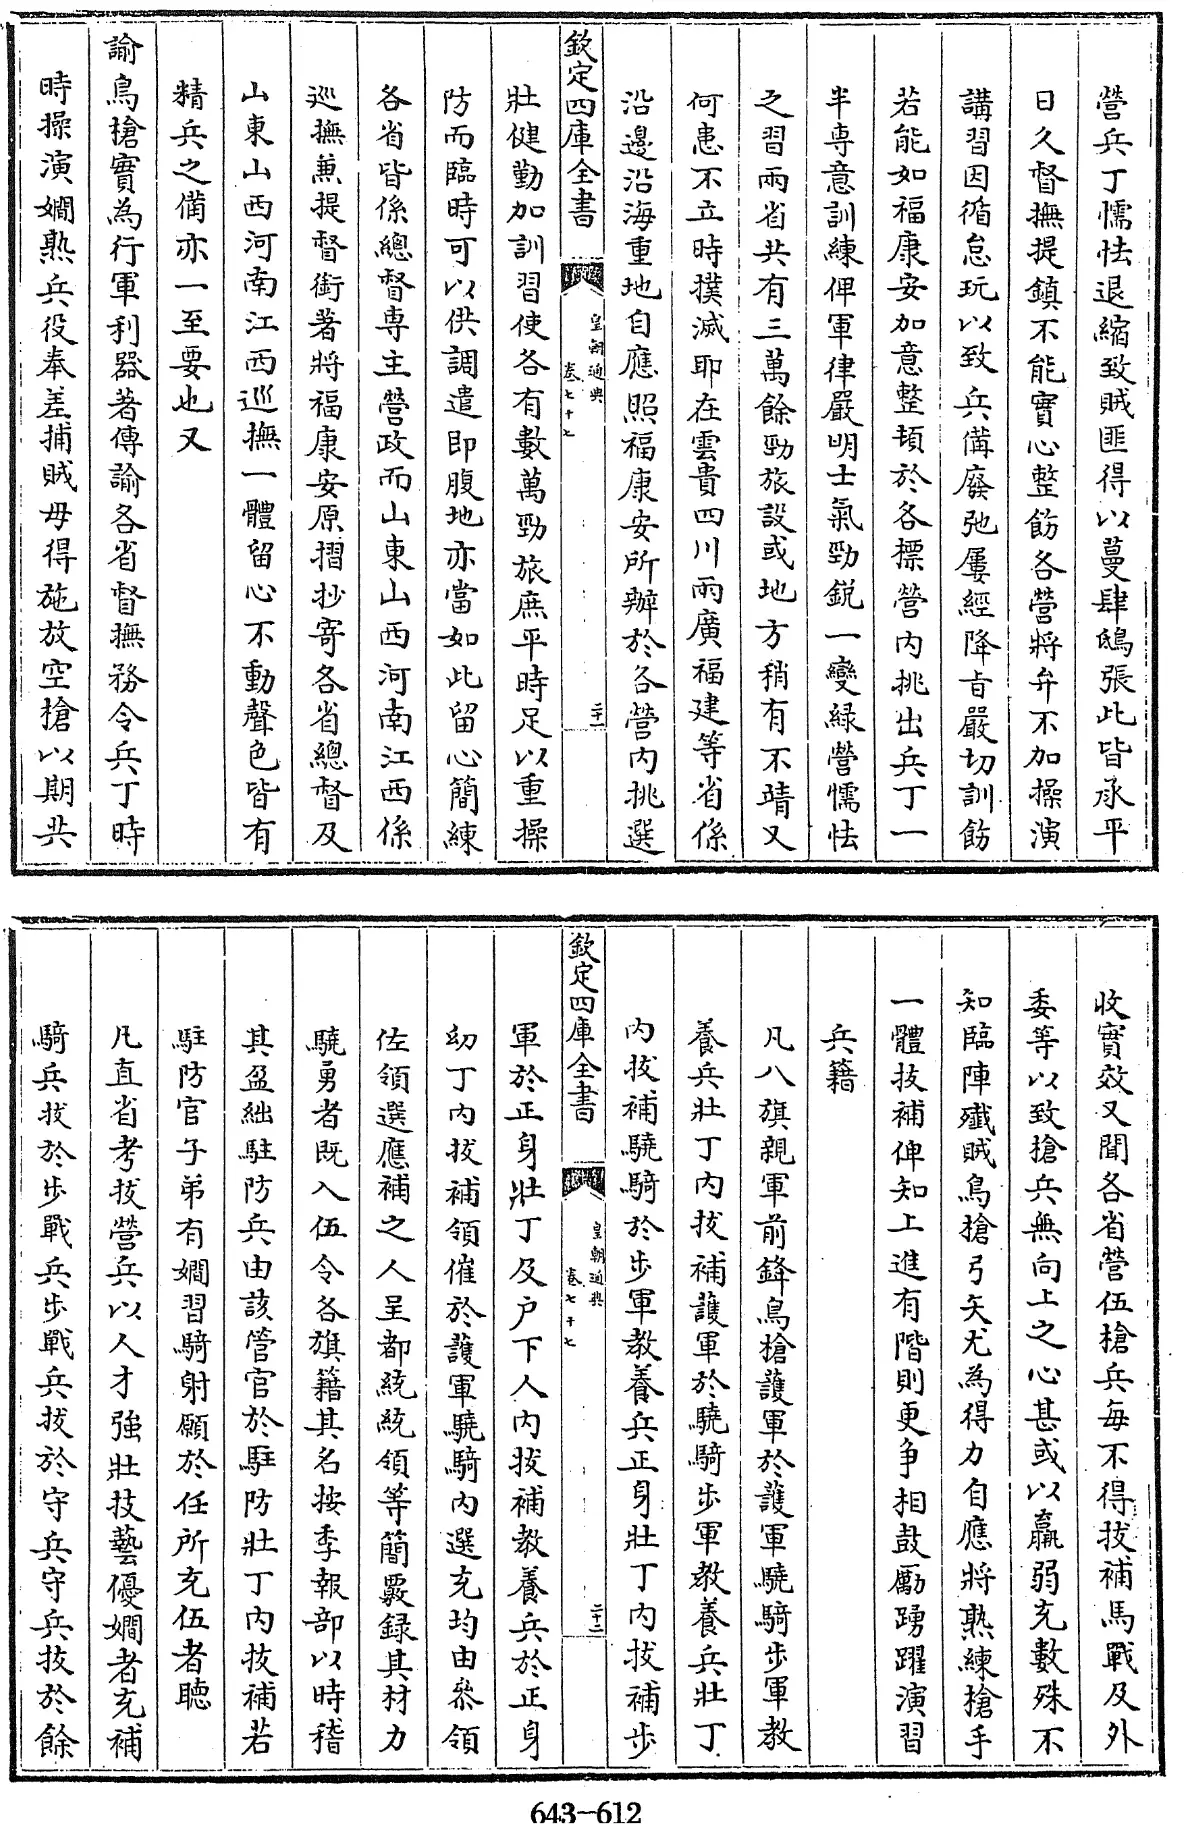 營兵丁懦怯退縮致賊匪得以蔓肆鴟張此皆承平
日久督撫提鎮不能實心整飭各營將弁不加操演
講習因循怠玩以致兵備廢弛屢經降旨嚴切訓飭
若能如福康安加意整頓於各標營內挑出兵丁一
半專意訓練俾軍律嚴明士氣勁銳一變綠營懦怯
之習兩省共有三萬餘勁旅設或地方稍有不靖又
何患不立時撲滅耶在雲貴四川兩廣福建等省係
沿邊沿海重地自應照福康安所辦於各營內挑選
欽定四庫全書
皇朝通典
卷七十七
二十一
壯健勤加訓習使各有數萬勁旅庶平時足以重操
防而臨時可以供調遣即腹地亦當如此留心簡練
各省皆係總督專主營政而山東山西河南江西係
巡撫兼提督銜著將福康安原摺抄寄各省總督及
山東山西河南江西巡撫一體留心不動聲色皆有
精兵之備亦一至要也又
諭鳥槍實為行軍利器著傳諭各省督撫務令兵丁時
時操演嫺熟兵役奉差捕賊毋得施放空槍以期共
收實效又聞各省營伍槍兵每不得拔補馬戰及外
委等以致槍兵無向上之心甚或以羸弱充數殊不
知臨陣殲賊鳥槍弓矢尤為得力自應將熟練槍手
一體拔補俾知上進有階則更爭相鼓勵踴躍演習
兵籍
凡八旗親軍前鋒鳥槍護軍於護軍驍騎步軍教
養兵壯丁內拔補護軍於驍騎步軍教養兵壯丁
內拔補驍騎於步軍教養兵正身壯丁內拔補步
欽定四庫全書
皇朝通典
卷七十七
二十二
軍於正身壯丁及户下人內拔補教養兵於正身
幼丁內拔補領催於護軍驍騎內選充均由叅領
佐領選應補之人呈都統統領等簡覈錄其材力
驍勇者既入伍令各旗籍其名按季報部以時稽
其盈絀駐防兵由該管官於駐防壯丁內拔補若
駐防官子弟有嫺習騎射願於任所充伍者聽
凡直省考拔營兵以人才強壯技藝優嫺者充補
騎兵拔於步戰兵步戰兵拔於守兵守兵拔於餘
643-612